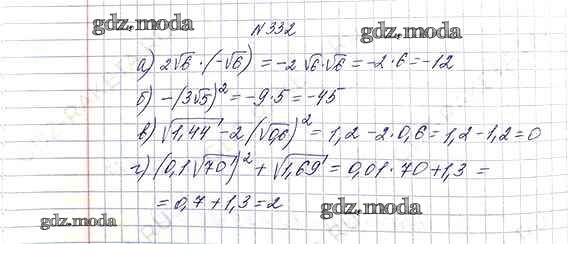 gdz.moda
№332
gdz.moda
а) 2√6 · (-√6) = -2 √6·√6 = -2·6 = -12
б) -(3√5)² = -9·5 = -45
в) √1,44 - 2(√0,6)² = 1,2 - 2·0,6 = 1,2 - 1,2 = 0
г) (0,1√70)² + √1,69 = 0,01·70 + 1,3 =
= 0,7 + 1,3 = 2
gdz.moda
gdz.moda